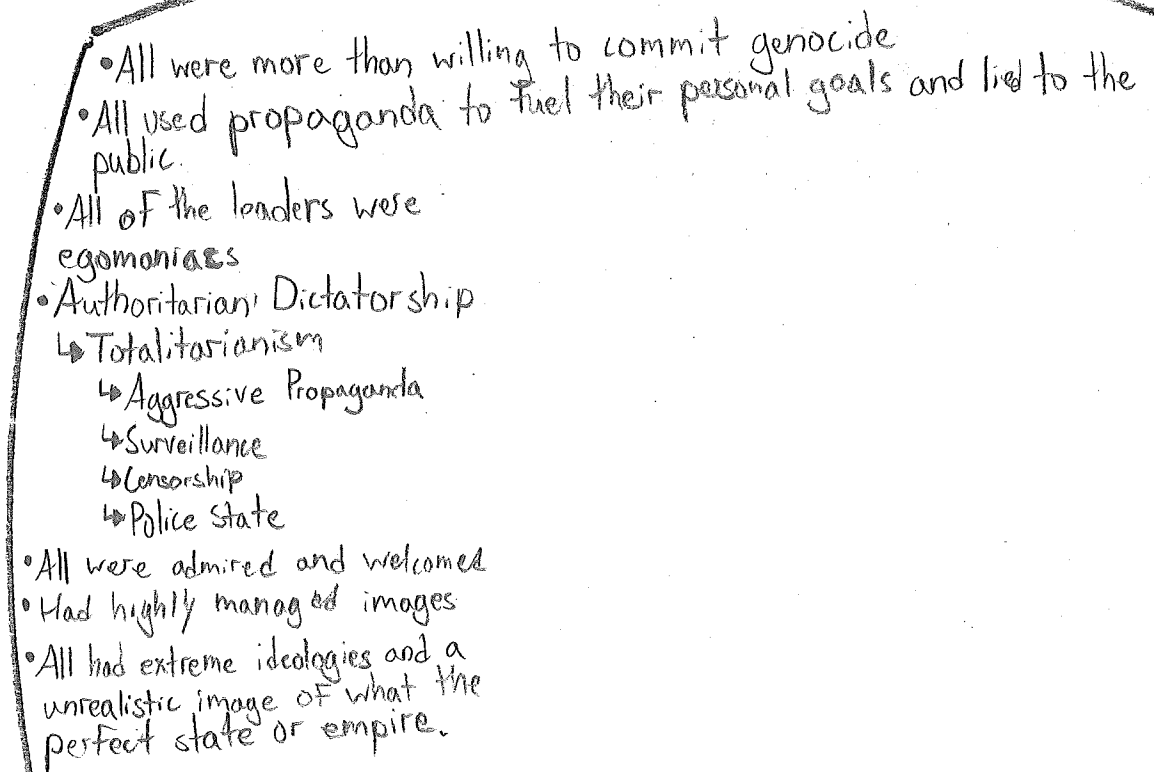 •All were more than willing to commit genocide
•All used propaganda to fuel their personal goals and lied to the
public.
•All of the leaders were
egomoniacs
•Authoritarian Dictatorship
↳Totalitarianism
↳Aggressive Propaganda
↳Surveillance
↳Censorship
↳Police State
•All were admired and welcomed
•Had highly managed images
•All had extreme ideologies and a
unrealistic image of what the
perfect state or empire.